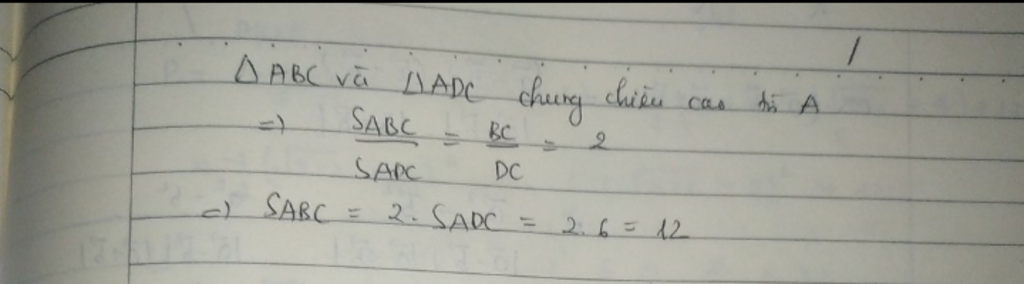 Δ ABC và Δ ADC chung chiều cao từ A
=> SABC / SADC = BC / DC = 2
=> SABC = 2. SADC = 2.6 = 12